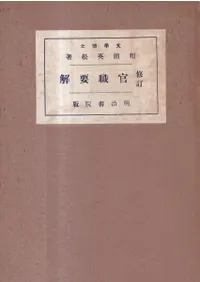 文學博士
和田英松著
修訂 官職要解
明治書院版